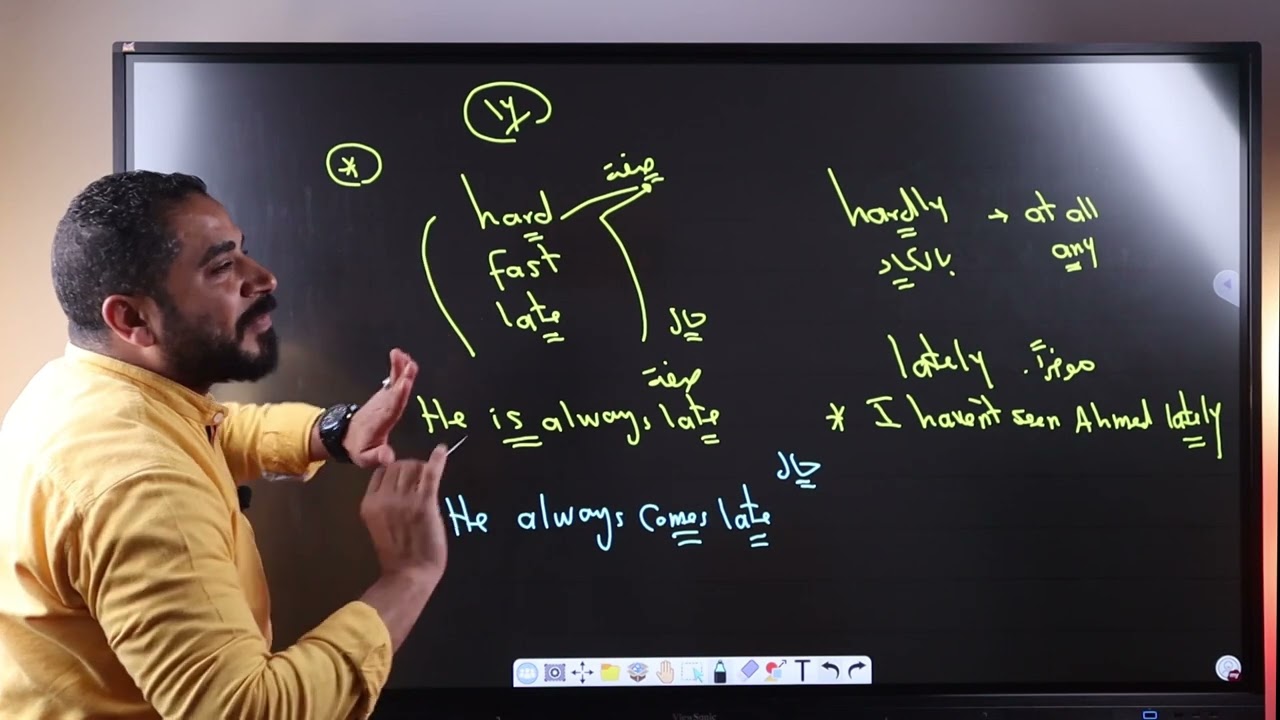 ly
*
صفة
hard
fast
late
حال
hardly → at all
بالكاد any
lately مؤخراً.
صفة
He is always late
* I haven't seen Ahmed lately
حال
He always comes late
T
ViewSonic